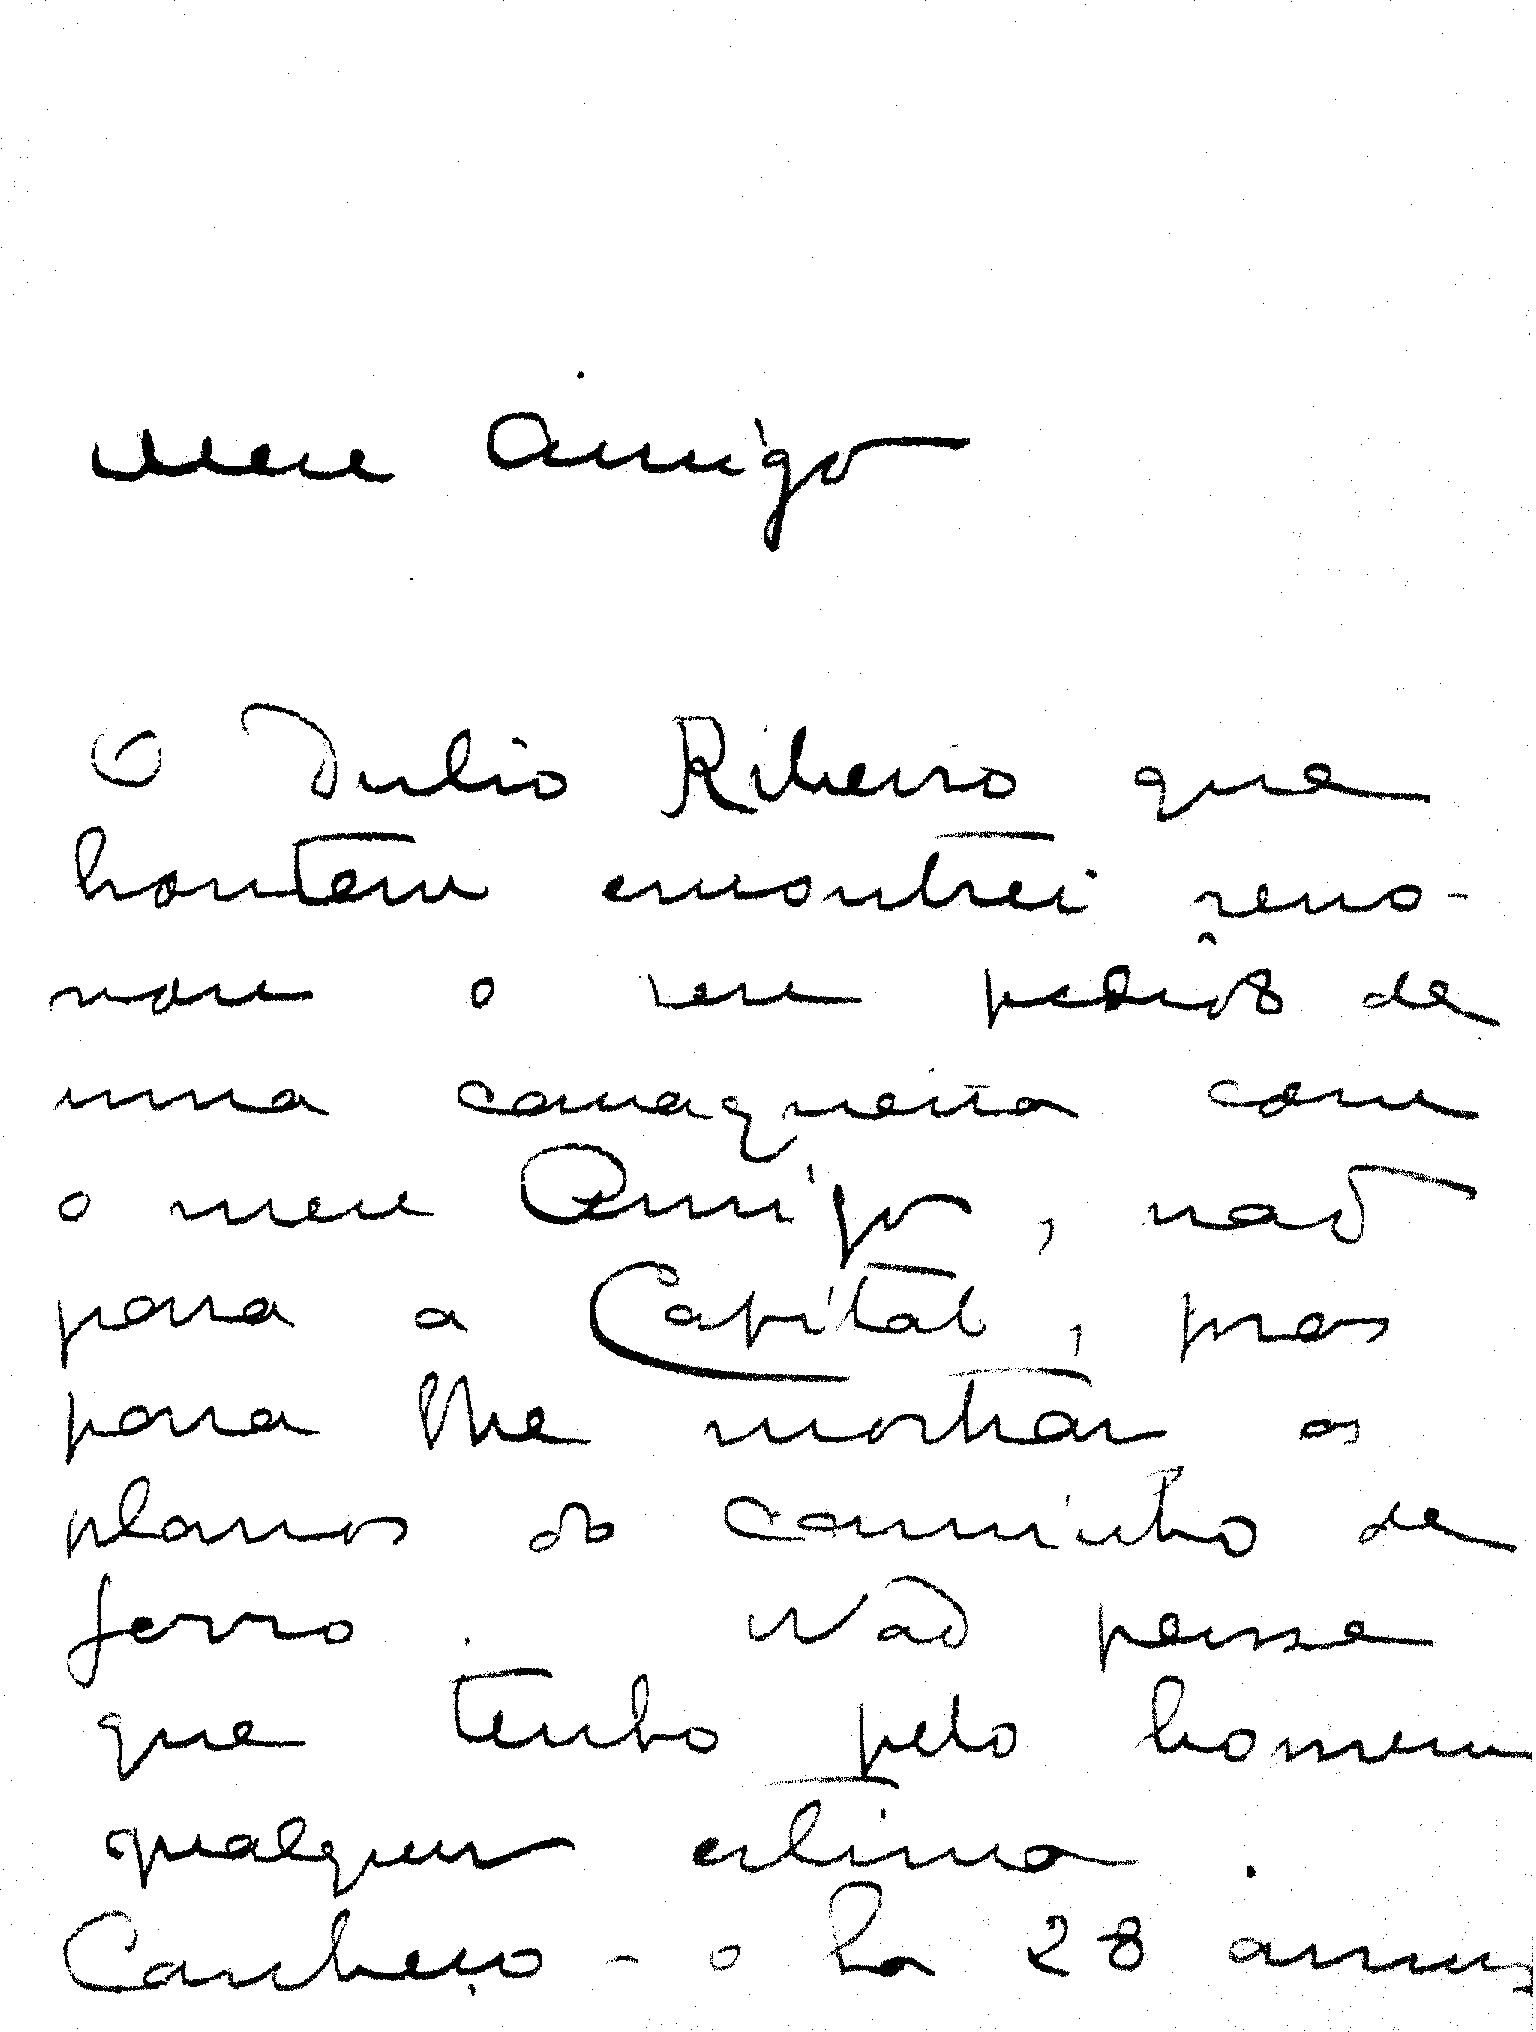 Meu Amigo
O Julio Ribeiro que
hontem encontrei reno-
vou o seu pedido de
uma cavaqueira com
o meu Amigo, não
para a Capital, mas
para lhe mostrar os
planos do caminho de
ferro. Não pense
que tenho pelo homem
qualquer estima.
Conheço-o ha 28 annos